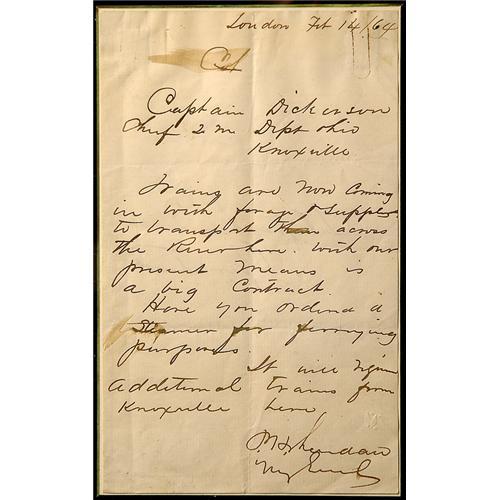 London Feb 14/64
Captain Dickerson
Chief Q M Dept Ohio
Knoxville
Trains are now coming
in with forage & supplies
to transport them across
the River here. with our
present means is
a big contract.
Have you ordered a
Steamer for ferrying
purposes.
It will require
additional trains from
Knoxville here,
P H Sheridan
Maj Genl